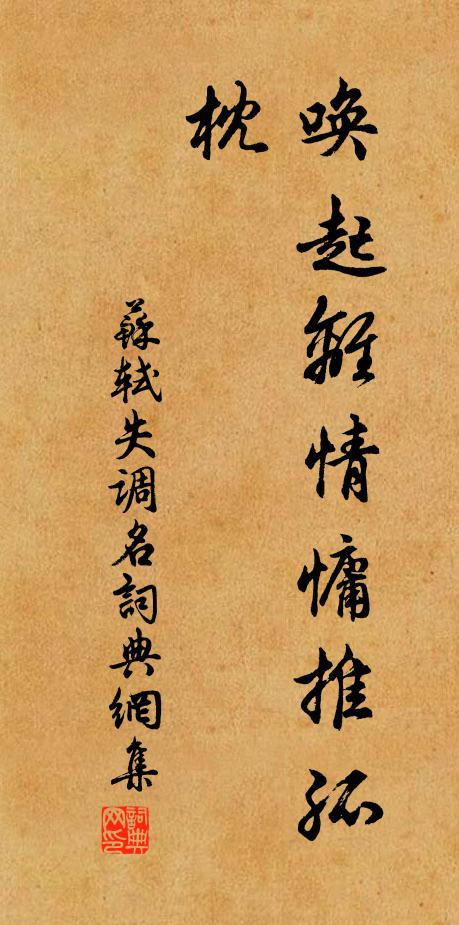 唤起離情慵推孤
枕
蘇軾失调名詞典網集
詞典网印